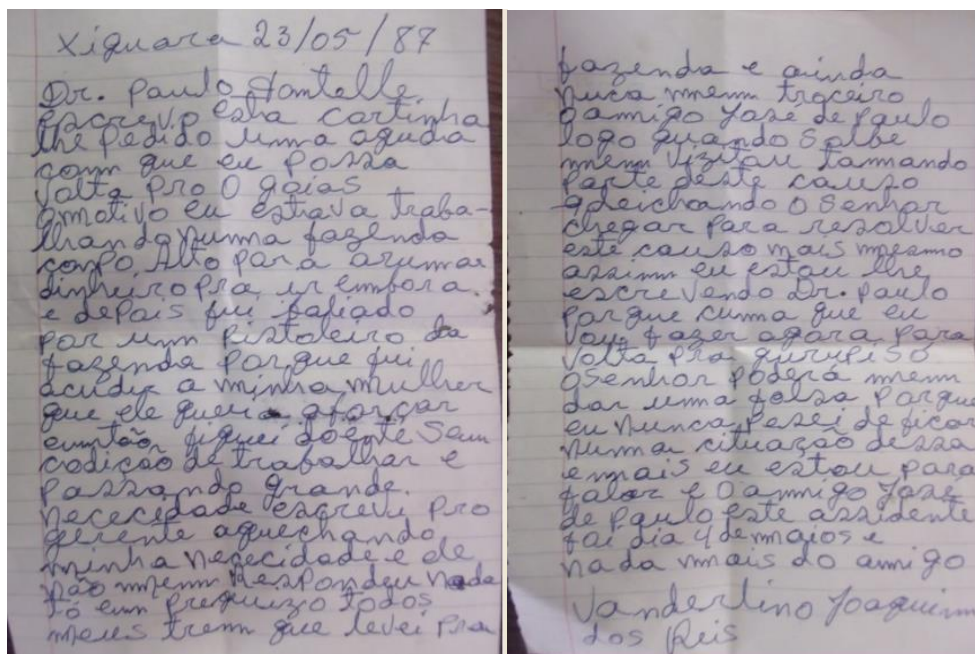 Xiguara 23/05/87
Dr. Paulo
escrevo esta cartinha
lhe pedido uma aguda
com que eu possa
volta pro O goias
omotivo eu estava traba-
lhando numa fazenda
conpo Alto para arumar
dinheiro pra ir embora.
e depois fui baliado
por um pistoleiro da
fazenda porque fui
acudir a minha mulher
que ele queria aforçar
emtão fiquei doente Sem
codição de trabalhar e
passando grande.
nececidade escrevi pro
gerente aquechando
minha nececidade e ele
não mem Respondeu nada
tô em prequizo todos
meus trem que levei pra
fazenda e ainda
nuca mem troceiro
O amigo Jose de Paulo
logo quando Solbe
mem vizitou tamando
parte deste causo
adeichando O Senhor
chegar para rezolver
este causo mais mesmo
assim eu estou lhe
escrevendo Dr. Paulo
porque cuma que eu
vou fazer agora para
volta pra gurupi Só
o Senhor poderá mem
dar uma folsa porque
eu nunca pesei de ficar
numa cituação dessa
e mais eu estou para
falar e O amigo Jose
de Paulo este assidente
foi dia 4 de maios e
nada mais do amigo
Vanderlino Joaquim
dos Reis